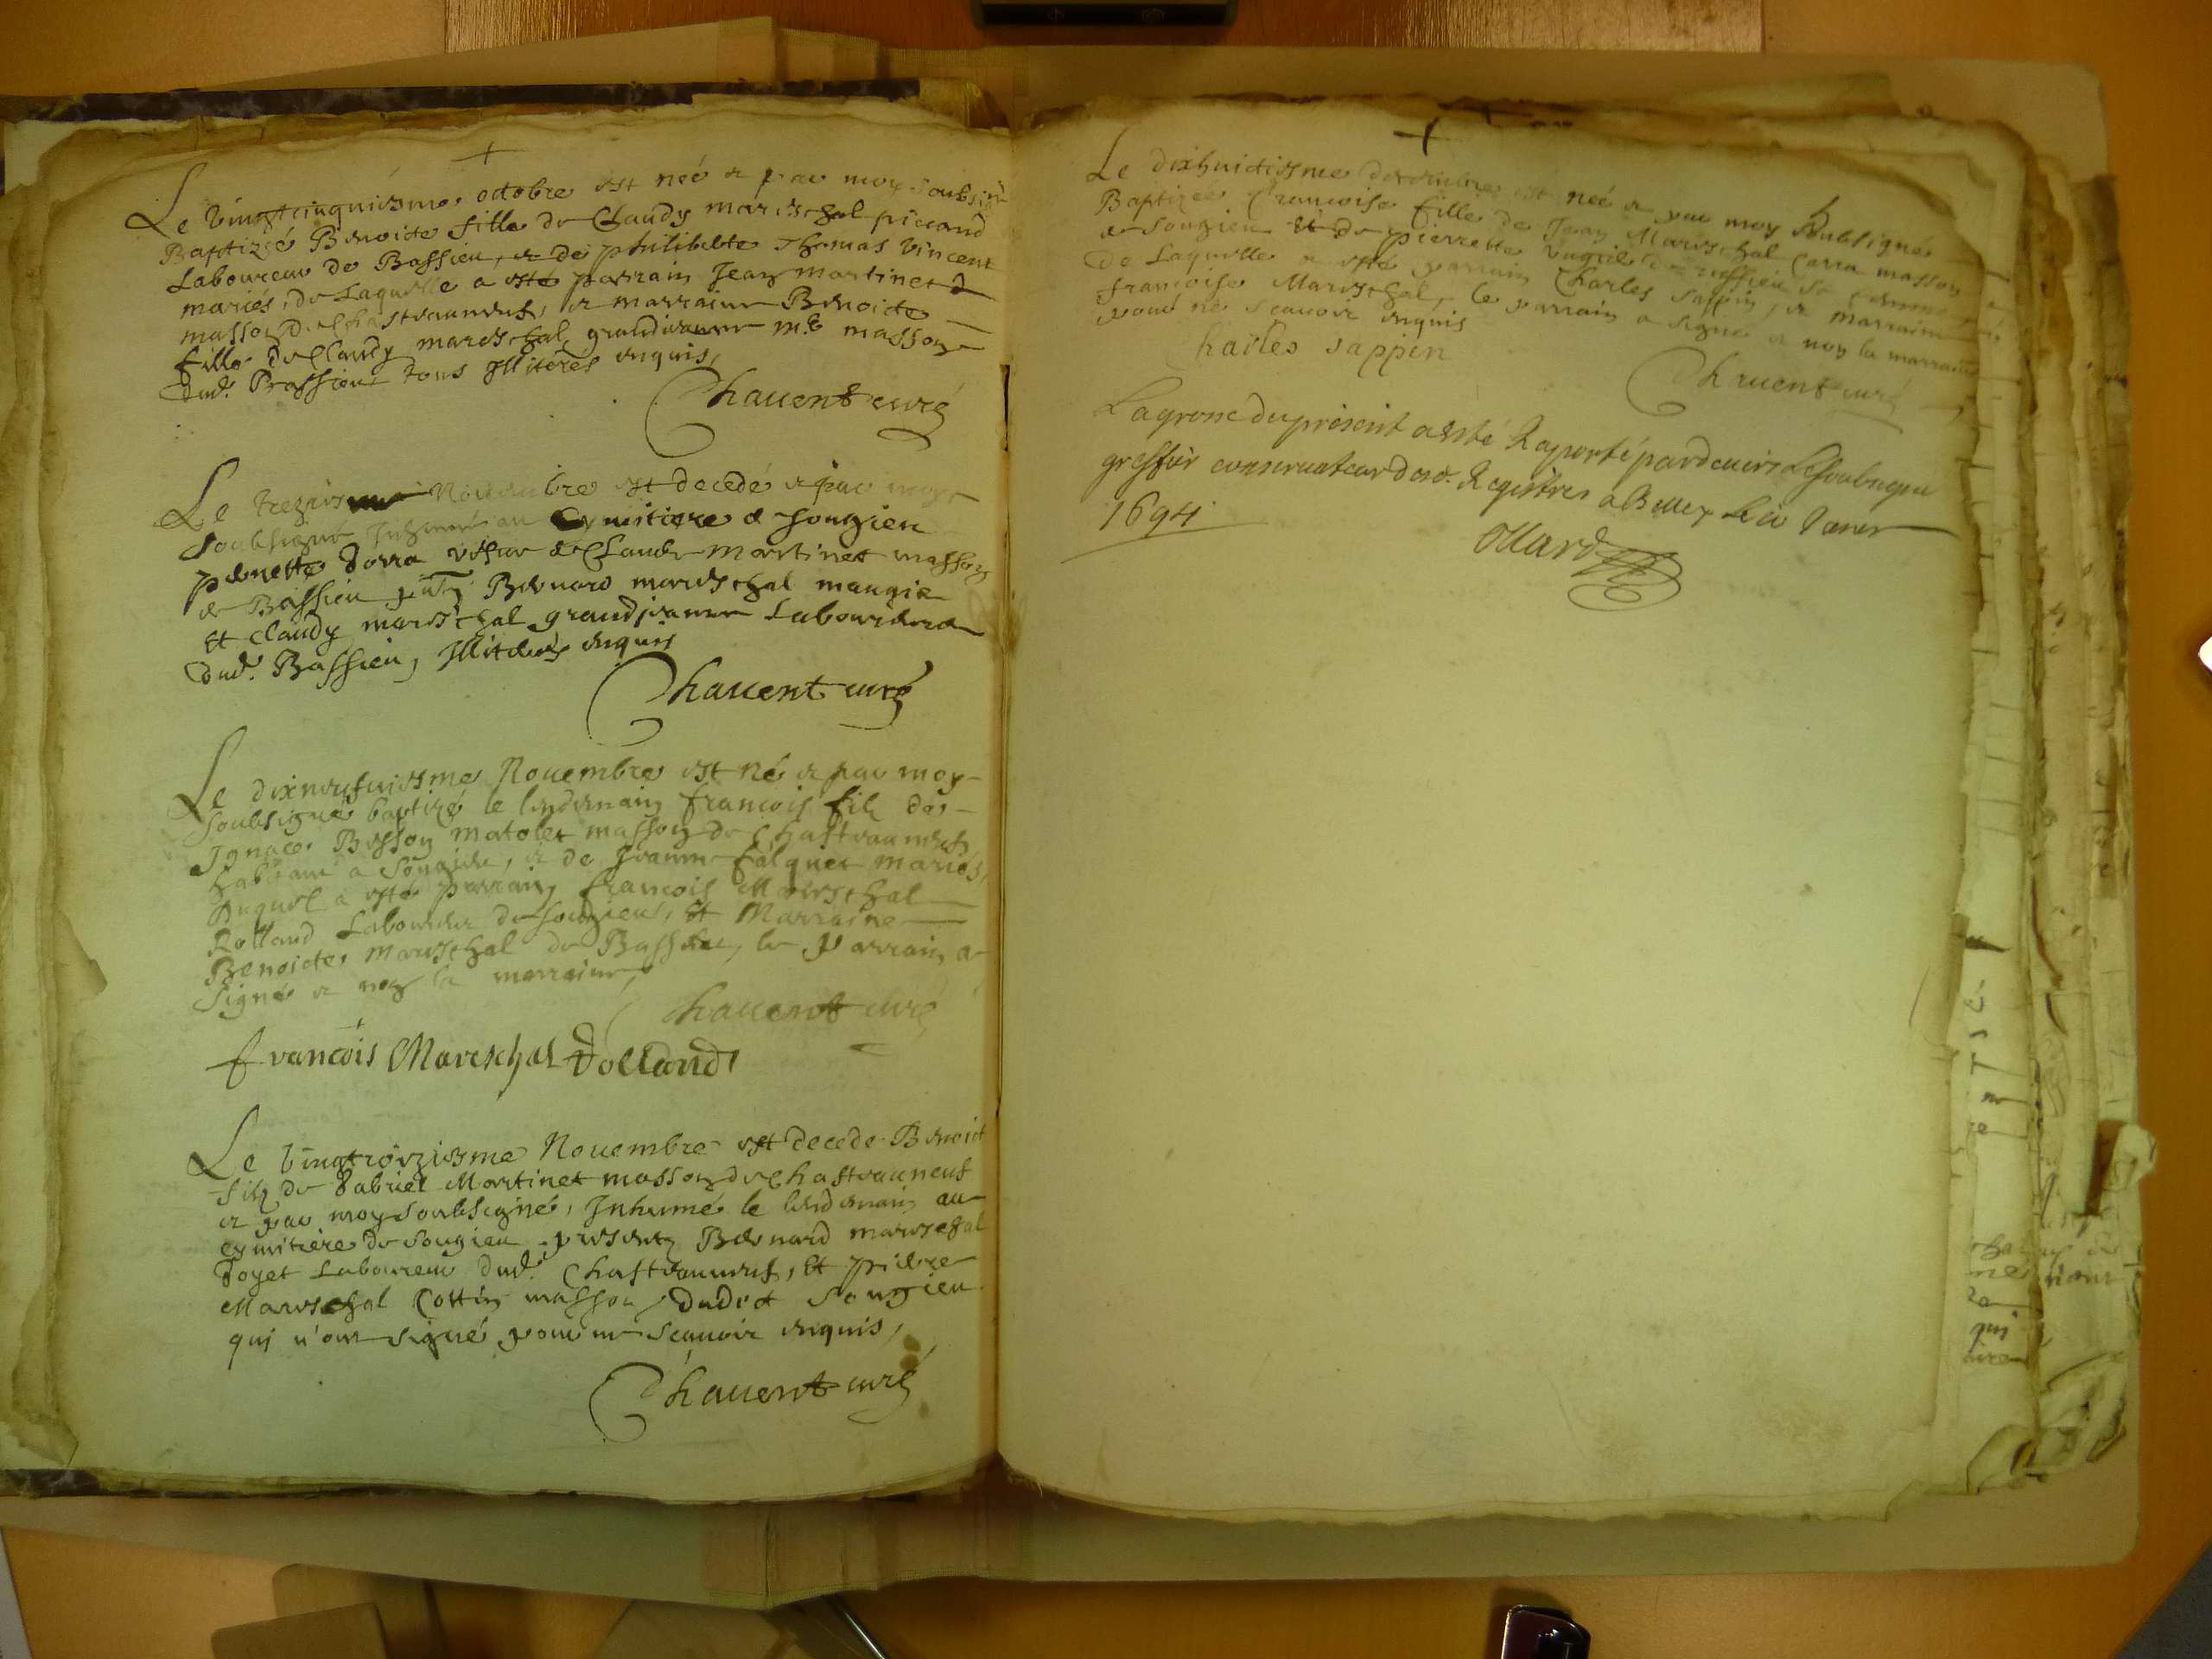 Le vingtcinquiesme octobre est née et par moy soubsigné
Baptizée Benoicte fille de Claudy mareschal piccand
Laboureur de Bassieu, et de philiberte Thomas Vincent
mariés, de Laquelle a esté parrain Jean martinet
masson de Chasteauneuf, et marraine Benoicte
fille de Claudy mareschal grandjeanne masson
dud. Bassieu tous Illiterés enquis,
Chauent curé
Le Novembre est decedé et par moy
soubsigné Inhumé au Cymitiere de songieu
penette vefue de Claude martinet masson
de Bassieu Bernard mareschal maugie
et Claudy mareschal grandjeanne Laboureurs
dud. Bassieu, Illiterés enquis
Chauent curé
Le dixneufuiesme Nouembre est né et par moy
soubsigné baptizé le lendemain francois filz de
Ignace Besson matolet masson de Chasteauneuf
habitant a Songieu, et de Jeanne falquet mariés,
Duquel a esté parrain francois Mareschal
Rolland Laboureur de songieu, et Marraine
Benoicte mareschal de Bassieu, le parrain a
signé et non la marraine,
Chauent curé
francois Mareschal Rolland
Le vingtroiziesme Nouembre est decedé Benoict
filz de Gabriel Martinet masson de Chasteauneuf
et par moy soubsigné, Inhumé le lendemain au
cymitiere de Songieu presentz Bernard mareschal
Laboureur dud. Chasteauneuf, Et pierre
Mareschal Cottin masson dudict Songieu
qui n'ont signé pour ne scauoir enquis,
Chauent curé
Le dixhuictiesme decembre est née et par moy soubsigné
Baptizée francoise fille de Jean Mareschal Carra masson
de Songieu Et de pierrette de ruffieu sa femme
De Laquelle a esté parrain Charles sappin, et marraine
francoise Mareschal, le parrain a signé et non la marraine
pour ne scauoir enquis
Charles sappin
Chauent curé
La grosse du present a esté Raporté pardeuers Le soubsigné
greffier conseruateur desd. Registres a Belley Le Janvier
1694